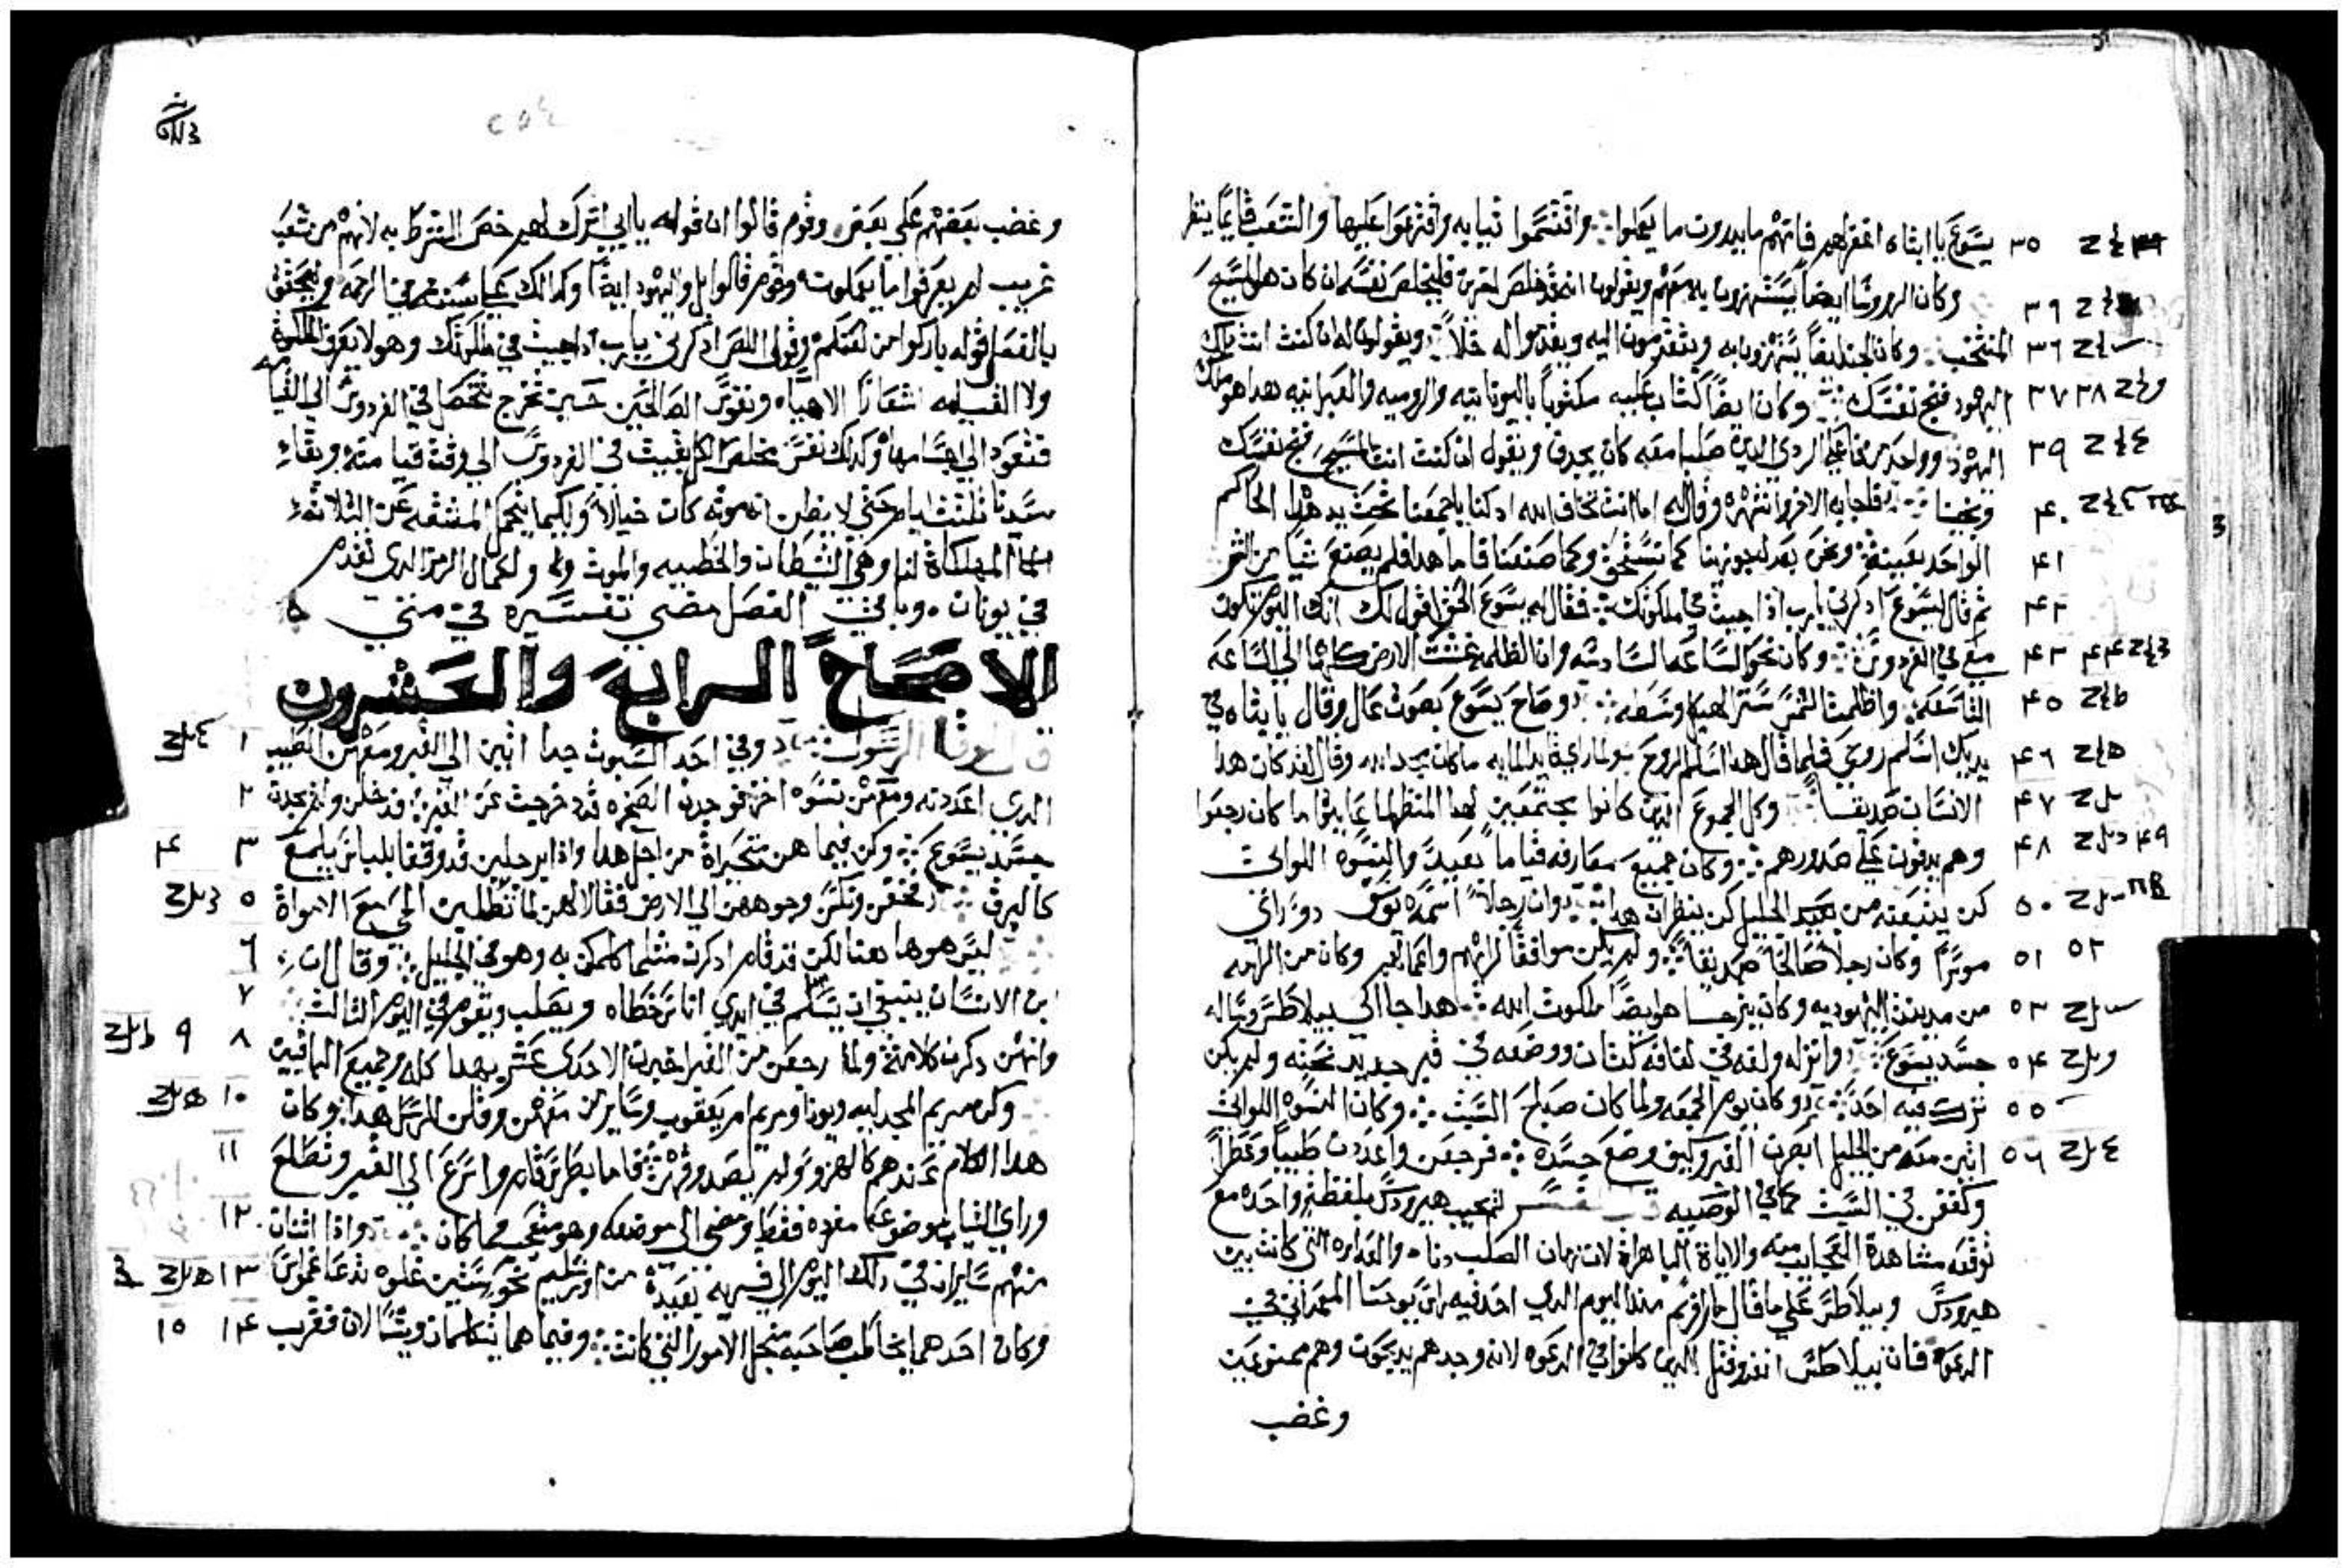 يسوع يا ابتاه اغفر لهم فانهم ما يدرون ما يعملوا واقتسموا تيابه واقترعوا عليها والشعب قايمًا ينظر
وكان الروسا ايضا يستهزوبا به معهم ويقولون انه قد خلص اخرين فليخلص نفسه ان كان هو المسيح
المنتخب وكان الجند ايضًا يستهزوبا به ويتقدمون اليه ويقدموا له خلاً ويقولون له ان كنت انت ملك
اليهود فنج نفسك وكان ايضًا كتاب عليه مكتوبًا باليونانيه والروميه والعبرانيه هدا هو ملك
اليهود وواحد من فاعلي الردي الدين صلبا معه كان يجدف ويقول ان كنت انت المسيح فنج نفسك
ونجينا فاجابه الاخر وانتهره وقال له اما انت تخاف الله اد كنا باجمعنا تحت يد هدا الحاكم
الواحد بعينه ونحن بعدل جوزينا كما نستحق وكما صنعنا فاما هدا فلم يصنع شيا من الشر
ثم قال ليسوع ادكرني يارب اذا جيت في ملكوتك فقال له يسوع الحق اقول لك انك اليوم تكون
معي في الفردوس وكان نحو الساعه السادسه وادا الظلمه غشت الارض كلها الي الساعه
التاسعه واظلمت الشمس ستر الهيكل وسطه وصاح يسوع بصوت عال وقال يا ابتاه في
يديك اسلم روحي فلما قال هدا اسلم الروح ولما راي قايد المايه ما كان مجد الله وقال لقد كان هدا
الانسان صديقا وكل الجموع الدين كانوا مجتمعين لهدا المنظر لما عاينوا ما كان رجعوا
وهم يدقون علي صدورهم وكان جميع معارفه قيامًا بعيد والنسوه اللواتي
كن يتبعنه من الجليل كن ينظران هدا وان رجلاً اسمه يوسف دو راي
موسرًا وكان رجلاً صالحًا صديقًا ولم يكن موافقًا لرايهم واعمالهم وكان من الرامه
من مدينة اليهوديه وكان يترجا هو ايضًا ملكوت الله هدا جا الى بيلاطس وساله
جسد يسوع وانزله ولفه في لفافه كتان ووضعه في قبر جديد نحته ولم يكن
ترك فيه احد وكان يوم الجمعه ولما كان صباح السبت وكان النسوه اللواتي
اتين معه من الجليل ابصرن القبر وكيف وضع جسده فرجعن واعددن طيبًا وعطرًا
وكففن في السبت كما في الوصيه لم يجيب هيرودس بلفظة واحده مع
توقعه مشاهدة العجايب منه والاياة الباهراة لان زمان الصلب دنا والعداوه التي كانت بين
هيرودس وبيلاطس علي ما قال مار افريم مند اليوم الدي اخد فيه راس يوحنا المعمداني في
الدعوه فان بيلاطس انفد وقتل الدين كانوا في الدعوه لانه وجدهم يدبحون وهم ممنوعين
وغضب
وغضب بعضهم علي بعض وقوم قالوا ان قوله يا ابي اترك لهم خص الشرط به لانهم من شعب
غريب لم يعرفوا ما يعملون وقوم قالوا بل واليهود ايضًا وكدالك
بالفصل قوله باركوا من لعنكم وقول اللص ادكرني يارب ادا جيت في ملكوتك وهو لا يعرف الملكوت
ولا القيامه اشعارًا الاهياه ونفوس الصالحين حين تخرج تتحصل في الفردوس الي القيامه
فتعود الي اجسامها وكدلك نفس مخلص الكل بقيت في الفردوس الي وقت قيامته وبقاء
سيدنا تلتت ايام حتي لا يظن ان موته كان خيالاً ولكيما يتحمل المشقه عن التلاتة
المهلكاة لنا وهي الشيطان والخطيه والموت ولكمال الرمز الدي تقدم
في يونان وباقي الفصل مضي تفسيره في متي
الاصحاح الرابع والعشرون
قال لوقا الرسول وفي احد السبوت جدا اتين الي القبر ومعهن الطيب
الدي اعددنه ومعهن نسوه اخر فوجدن الصخره قد دحرجت عن القبر فدخلن ولم يجدن
جسد يسوع وكن فيما هن متحيراة من اجل هدا وادا برجلين قد وقفا بلباس يلمع
كالبرق فخفن ونكسن وجوههن الي الارض فقالا لهن لما تطلبين الحي مع الامواة
ليس هو هاهنا لكن قد قام ادكرن متلما كلمكن به وهو في الجليل وقال ان
ابن الانسان ينبغي ان يتسلم في ايدي اناس خطاه ويصلب ويقوم في اليوم التالت
وانهن دكرن كلامه ولما رجعن من القبر اخبرن الاحدى عشر بهدا كله وجميع الباقين
وكن مريم المجدليه ويونا ومريم ام يعقوب وساير من معهن وقلن للرسل هدا وكان
هدا الكلام عندهم كالهزو ولم يصدقوهن فاما بطرس قام واسرع الي القبر وتطلع
وراي التياب موضوعه مفرده فقط ومضي الي موضعه وهو متعجب مما كان وادا اتنان
منهم سايران في دلك اليوم الي قريه بعيدة من اورشليم نحو ستين غلوه تدعا عمواس
وكان احدهما يخاطب صاحبه من اجل الامور التي كانت وفيما هما يتكلمان ويتسالان فقرب